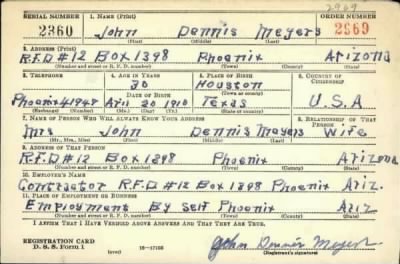 2969
SERIAL NUMBER 1. NAME (Print) ORDER NUMBER
2360 John Dennis Meyers 2969
(First) (Middle) (Last)
2. ADDRESS (Print)
R.F.D #12 Box 1398 Phoenix Arizona
(Number and street or R. F. D. number) (Town) (County) (State)
3. TELEPHONE 4. AGE IN YEARS 5. PLACE OF BIRTH 6. COUNTRY OF CITIZENSHIP
30 Houston
DATE OF BIRTH (Town or county)
Phoenix 41948 Apri 20 1910 Texas U.S.A
(Exchange) (Number) (Mo.) (Day) (Yr.) (State or country)
7. NAME OF PERSON WHO WILL ALWAYS KNOW YOUR ADDRESS 8. RELATIONSHIP OF THAT PERSON
Mrs John Dennis Meyers Wife
(Mr., Mrs., Miss) (First) (Middle) (Last)
9. ADDRESS OF THAT PERSON
R.F.D #12 Box 1398 Phoenix Arizona
(Number and street or R. F. D. number) (Town) (County) (State)
10. EMPLOYER'S NAME
Contractor R.F.D #12 Box 1398 Phoenix Ariz.
11. PLACE OF EMPLOYMENT OR BUSINESS
Employment By Self Phoenix Ariz
(Number and street or R. F. D. number) (Town) (County) (State)
I AFFIRM THAT I HAVE VERIFIED ABOVE ANSWERS AND THAT THEY ARE TRUE.
REGISTRATION CARD
D. S. S. Form 1 (over) 16—17105
John Dennis Meyers
(Registrant's signature)